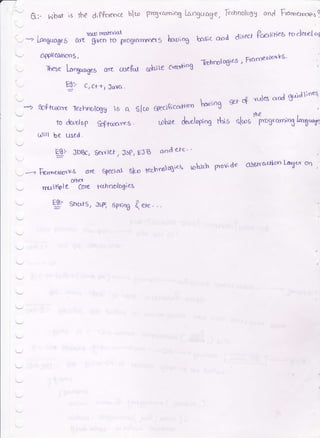 Q:- What is the difference b/w programming Language, Technology and Frameworks?
raw material
→ Languages are given to programmers having basic and direct facilities to develop
applications.
These Languages are useful while creating Technologies, Frameworks.
Eg:- C, C++, Java.
→ Software Technology is a s/w specification having set of rules and guidlines
to develop Softwares. while developing this s/ws the programming language
will be used.
Eg:- JDBC, Servlet, JSP, EJB and etc..
→ Frameworks are special s/w technologies which provide abstraction Layer on
other
multiple core technologies
Eg:- Struts, JSF, Spring & etc...